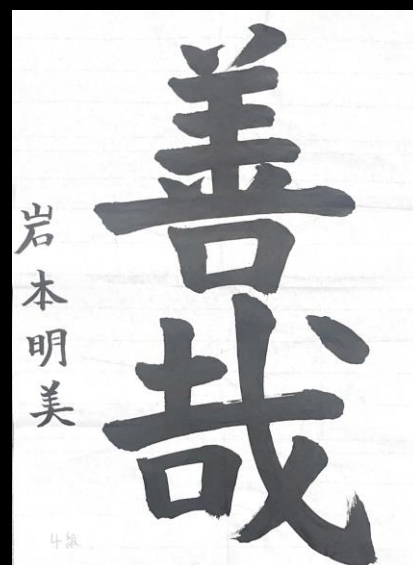 善哉
岩本明美
4級